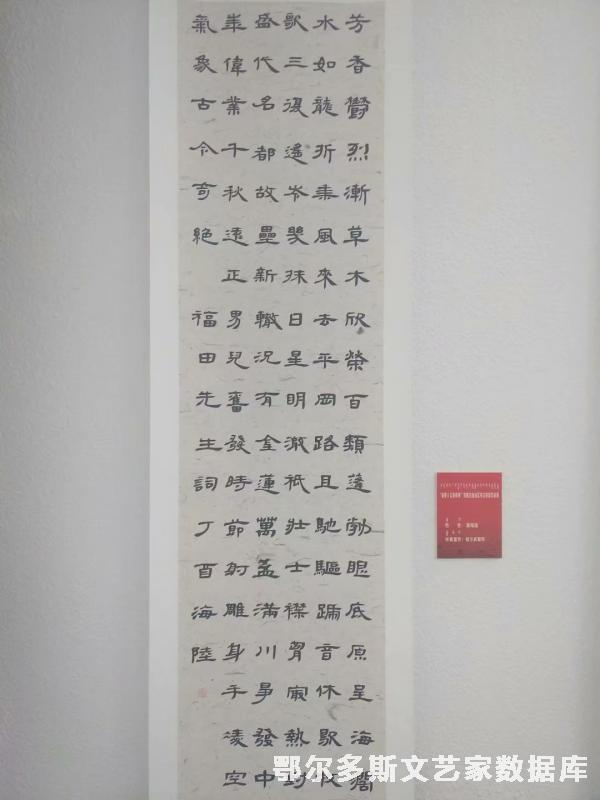 芳香鬱烈漸草木欣榮百類蓬勃眼底原呈海闊
水如龍乘風來去平岡路且馳驅蹄音休歇牧
歌三復遙岑抹日星明澈祇壯士襟胸熱對
盛代名都故壘新轍況有金蓮萬盞滿川爭發中
華偉業千秋遠正男兒奮發時節射雕身手凌空
氣象古今奇絕
福田先生詞丁酉海陸
鄂尔多斯文艺家数据库